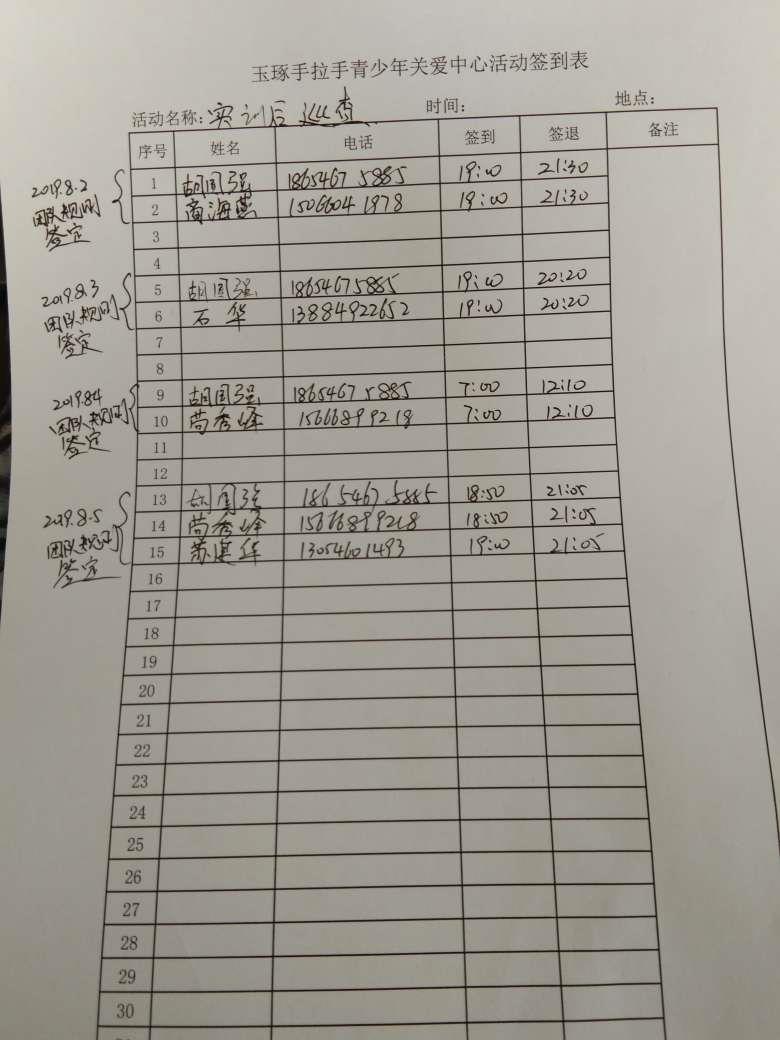 玉琢手拉手青少年关爱中心活动签到表
活动名称:实训后巡查 时间: 地点:
序号 姓名 电话 签到 签退 备注
2019.8.2
团队规则
签定
1 胡国强 18654675885 19:00 21:30
2 商海燕 15066041978 19:00 21:30
3
4
2019.8.3
团队规则
签定
5 胡国强 18654675885 19:00 20:20
6 石华 13884922652 19:00 20:20
7
8
2019.8.4
团队规则
签定
9 胡国强 18654675885 7:00 12:10
10 苘秀峰 15666899218 7:00 12:10
11
12
2019.8.5
团队规则
签定
13 胡国强 18654675885 18:50 21:05
14 苘秀峰 15666899218 18:50 21:05
15 苏 华 13054601493 19:00 21:05
16
17
18
19
20
21
22
23
24
25
26
27
28
29
30